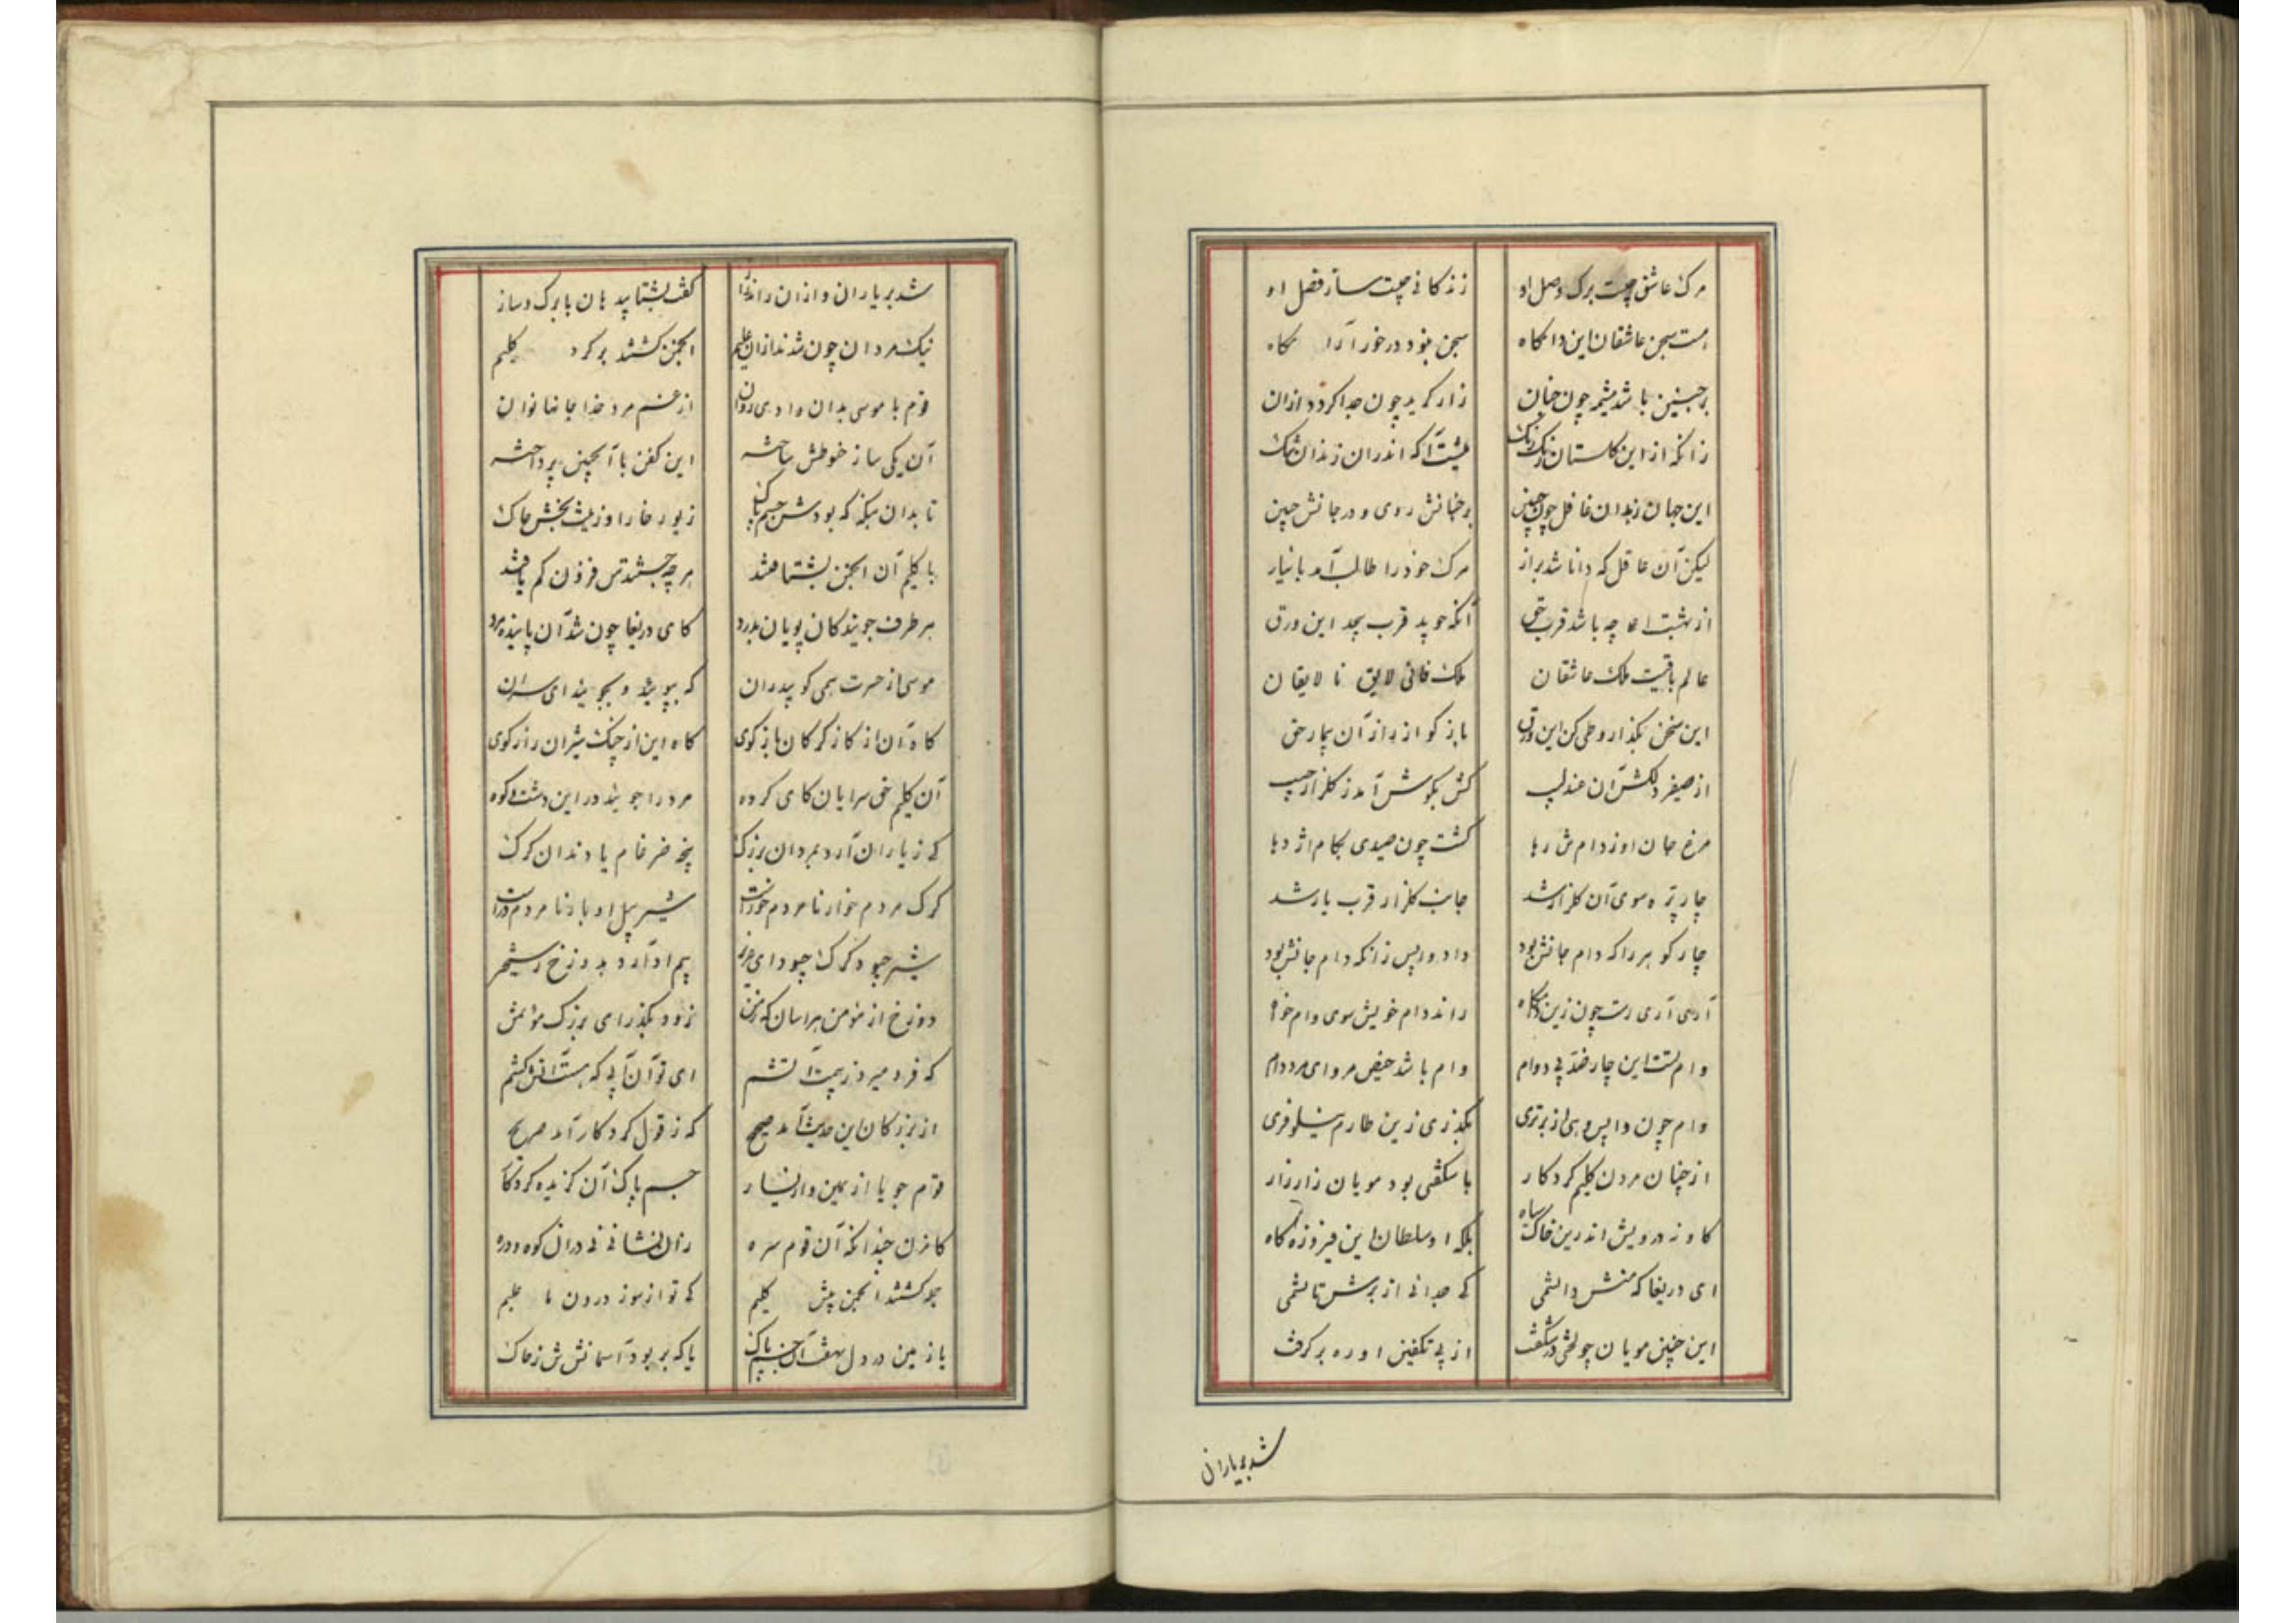 مرک عاشق چیست برک وصل او زندکانی چیست ساز فصل او
هست سجن عاشقان این دامکاه سجن نبود درخور آرامکاه
بر جنین باشد مشیمه چون جنان زار کرید چون جدا کردد ازان
زانکه از این کلستان اندران زندان
این جهان زندان غافل چون جنین بر جنانش روی و در جانش حنین
لیکن آن عاقل که دانا شد براز مرک خود را طالب آمد با نیاز
از بهشت اعلا چه باشد قرب حق آنکه جوید قرب این ورق
عالم باقیست ملک عاشقان ملک فانی لایق نالایقان
این سخن بکذار و طی کن این ورق باز کو از راز آن بیمار حق
از صفیر دلکش آن عندلیب کش بکوش آمد ز کلزار حبیب
مرغ جان او ز دامش رها کشت چون صیدی بکام اژدها
چار پره سوی آن کلزار شد جانب کلزار قرب یار شد
چار کوهر را که دام جانش بود داد واپس زانکه دام جانش بود
آری آری رست چون زین دامکاه راند دام خویش سوی دام خواه
وام تست این چار ضد بی دوام وام باشد حیض مرد ای مرد دام
وام چون واپس دهی از برتری بکذری زین طارم نیلوفری
از چنان مردن کلیم کردکار با شکفتی بود مویان زار زار
کاو نه درویش اندرین خاک سیاه بلکه او سلطان این فیروزه کاه
ای دریغا که منش دانستمی کی جدائی از برش تانستمی
این چنین مویان چو لختی در شکفت از پی تکفین او ره برکرفت
شد بر یاران
شد بر یاران و ازان راندند راز کفت بشتابید هان با برک و ساز
نیک مردان چون شدند ازان علیم انجمن کشتند بر کرد کلیم
قوم با موسی بدان وادی روان از غم مرد خدا جانها نوان
آن یکی ساز حنوطش ساخته این کفن با آنچنین پرداخته
تا بدان مبکه که بودش جسم پاک زیور خارا و زینت بخش خاک
با کلیم آن انجمن بشتافتند هر چه جستندش فزون کم یافتند
هر طرف جویندکان پویان بدرد کای دریغا چون شد آن پاینده مرد
موسی از حسرت همی کویدران که بپویید و بجویید ای سران
کاه آن از کاز کرکان باز کوی کاه این از چنک شیران راز کوی
آن کلیم حق سرایان کای کروه مرد را جویید در این دشت و کوه
کی ز یاران آرد بمردان بزرک پنجه ضرغام یا دندان کرک
کرک مردم خوار نامردم خور است شیر پیل اوبار نامردم در است
شیر چبود کرک چبود ای بیم او آرد به دوزخ رستخیز
دوزخ از مؤمن هراسان زود بکذر ای بزرک مؤتمن
که فرو میرد ز بیمت آتشم ای تو آن آبی که هست آتش کشم
از بزرکان این حدیث آمد صحیح که ز قول کردکار آمد صریح
قوم جویا از یمین و از یسار جسم پاک آن کزیده کردکار
کافزون چندانکه آن قوم سره زان نشانی نی دران کوه و دره
جو کشتند انجمن پیش کلیم کی تو از سوز درون ما علیم
یا زمین در دل نهفت آن جسم پاک یا که بر بود آسمانش ز خاک